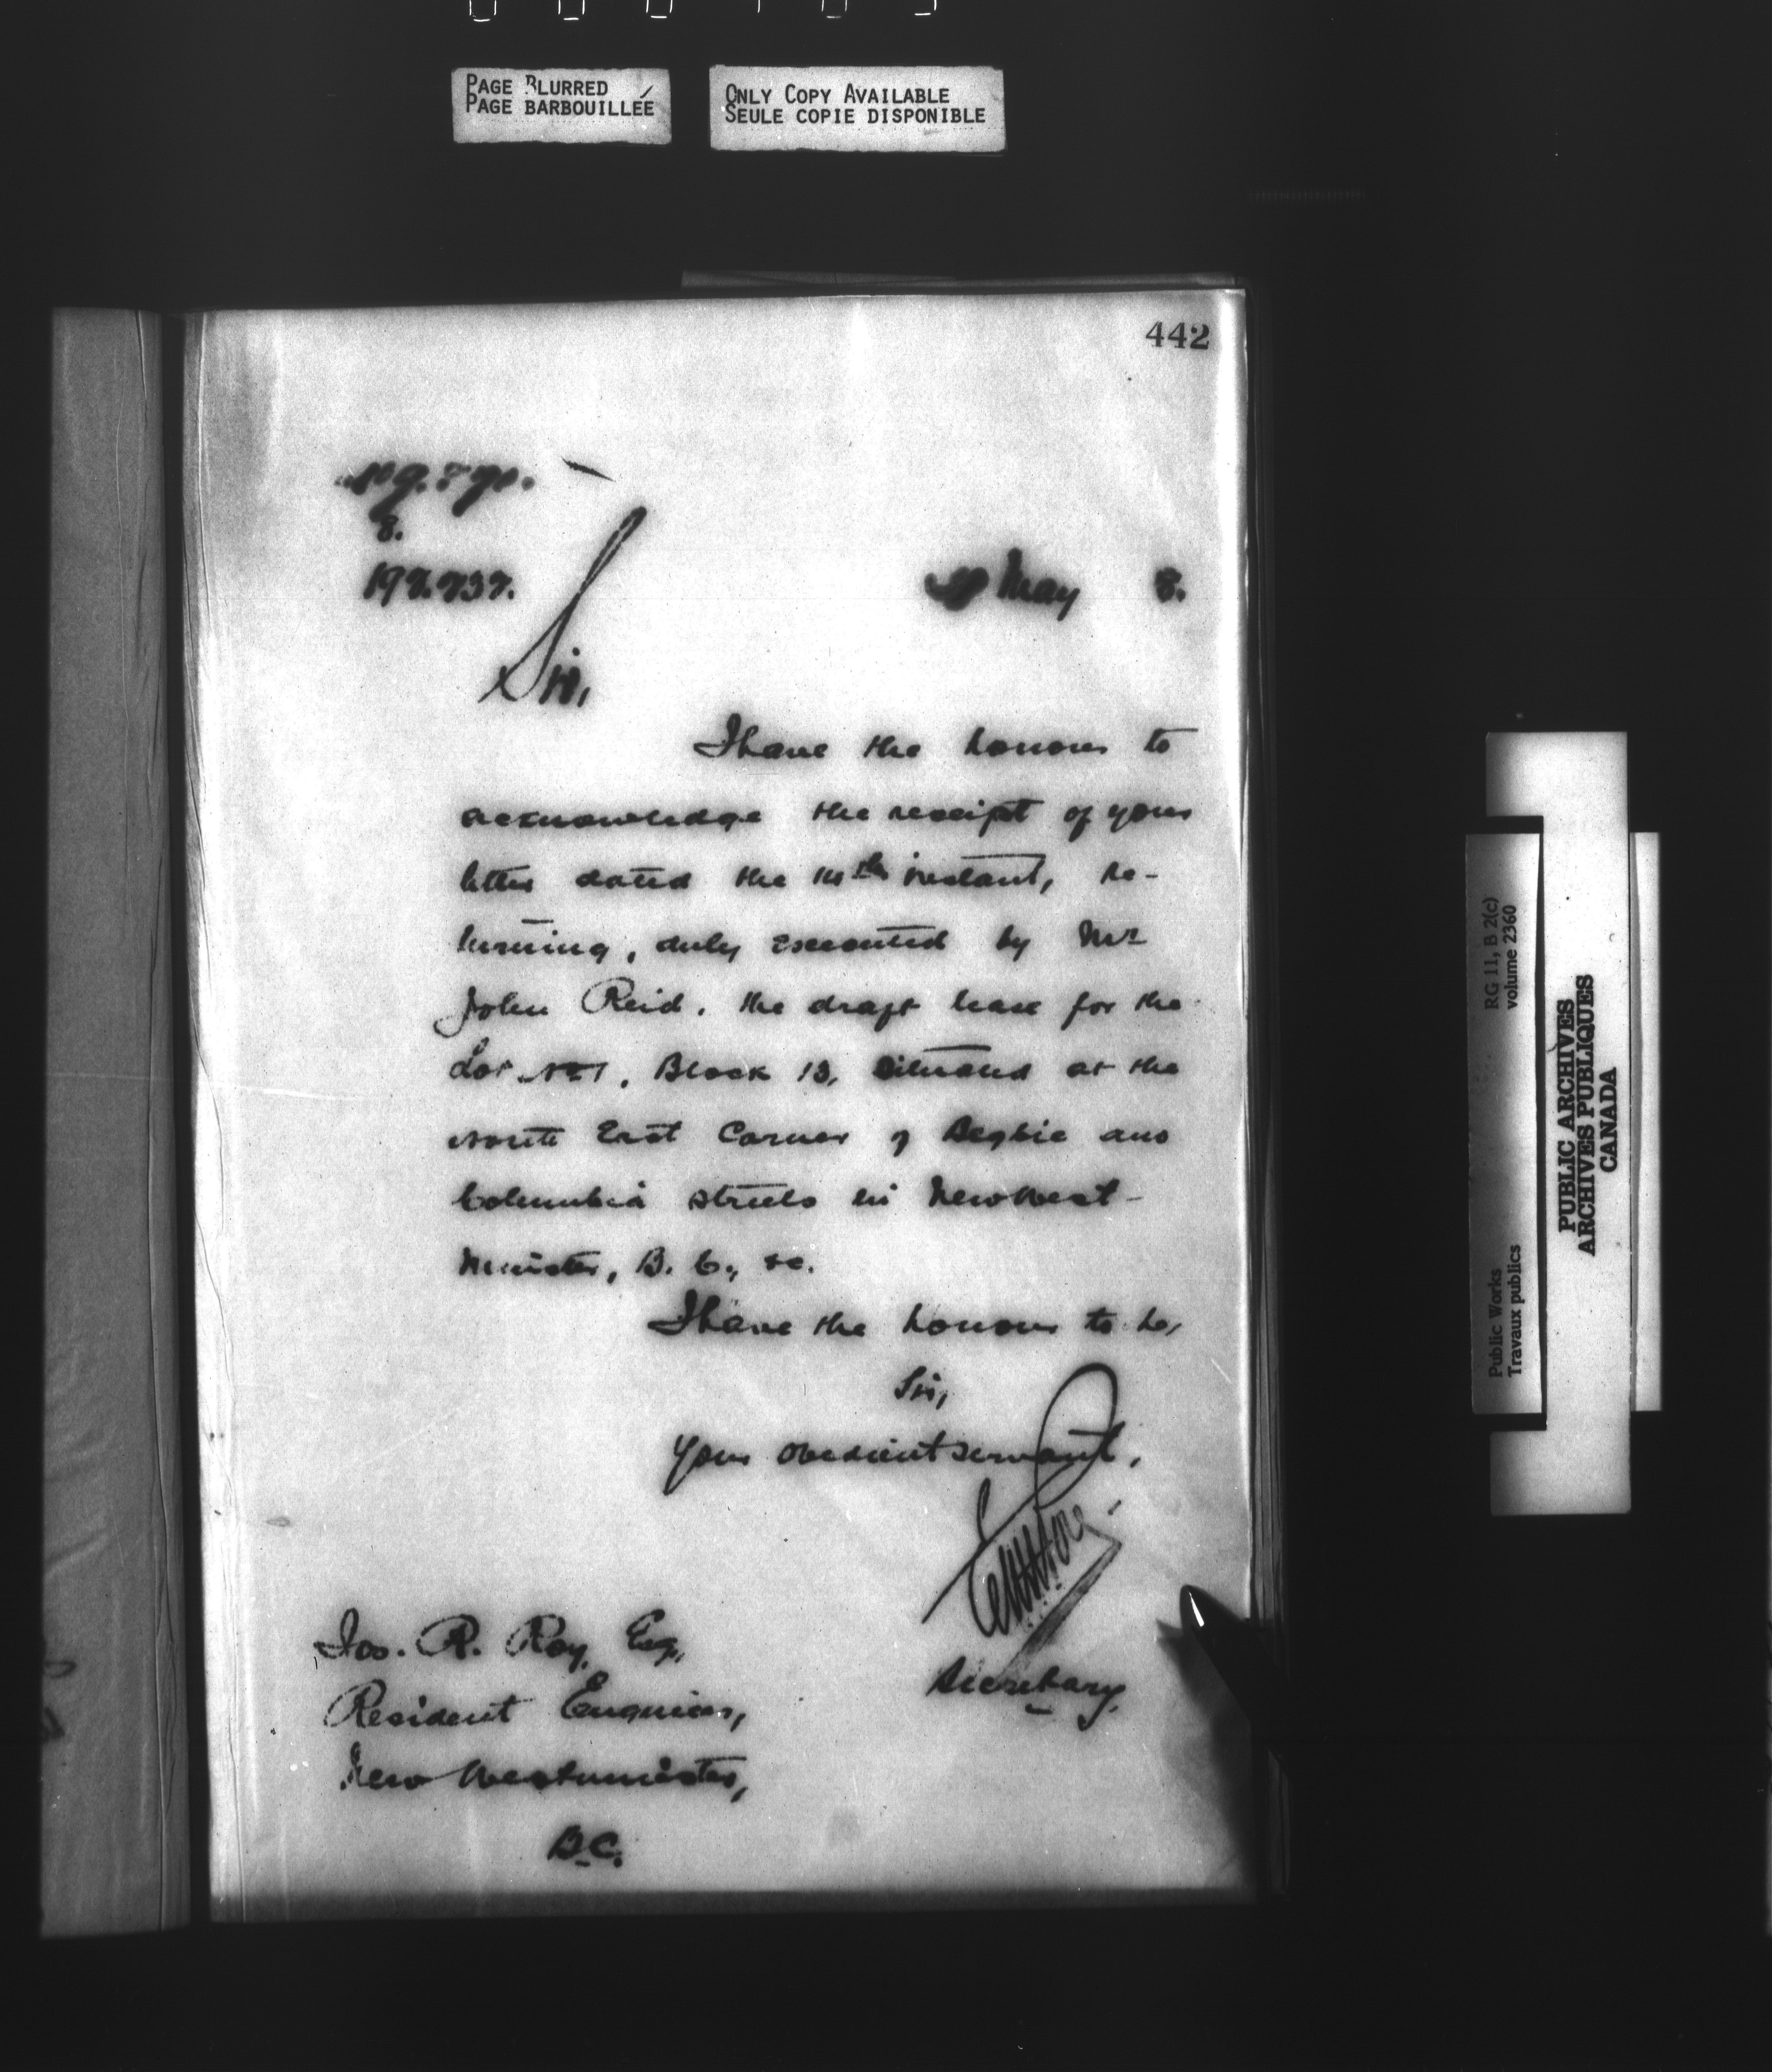 PAGE BLURRED
PAGE BARBOUILLÉE
ONLY COPY AVAILABLE
SEULE COPIE DISPONIBLE
442
8.
May 8.
Sir,
I have the honour to
acknowledge the receipt of your
letter dated the instant, re-
turning, duly executed by Mr
John Reid, the draft lease for the
Lot No 1, Block 13, situated at the
North East Corner of Begbie and
Columbia streets in New West-
minster, B.C., &c.
I have the honour to be,
Sir,
Your obedient servant,
Secretary.
Jos. R. Roy, Esq,
Resident Engineer,
New Westminster,
B.C.
RG 11, B 2(c)
volume 2360
Public Works
Travaux publics
PUBLIC ARCHIVES
ARCHIVES PUBLIQUES
CANADA